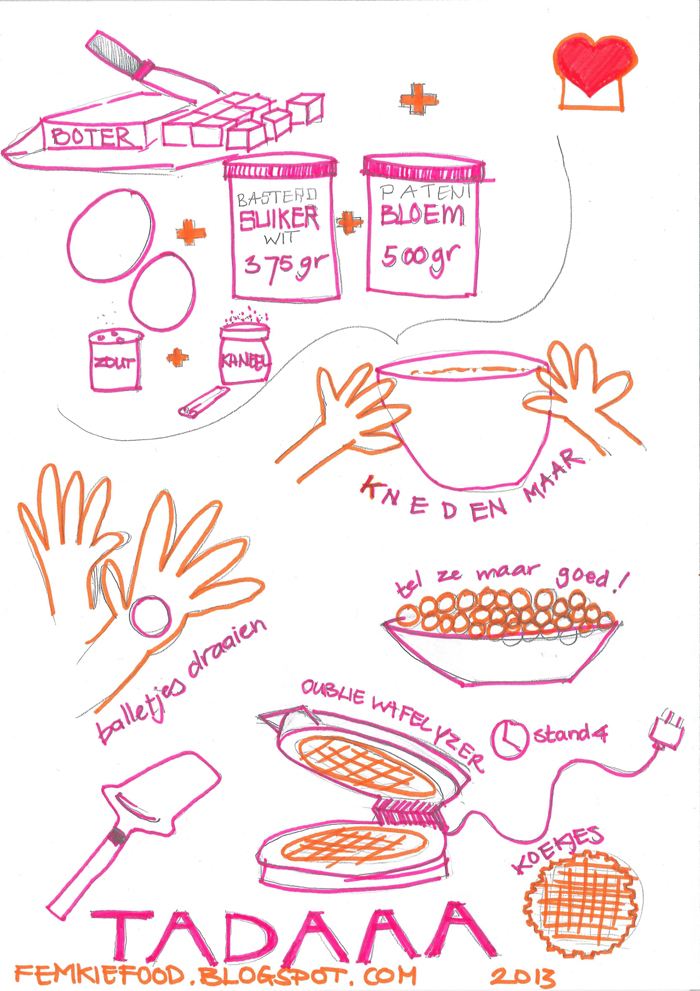 BOTER
BASTERD
SUIKER
WIT
375gr
PATENT
BLOEM
500gr
ZOUT
KANEEL
KNEDEN MAAR
balletjes draaien
tel ze maar goed!
OUBLIE WAFELYZER
stand 4
KOEKJES
TADAAA
FEMKIEFOOD.BLOGSPOT.COM 2013